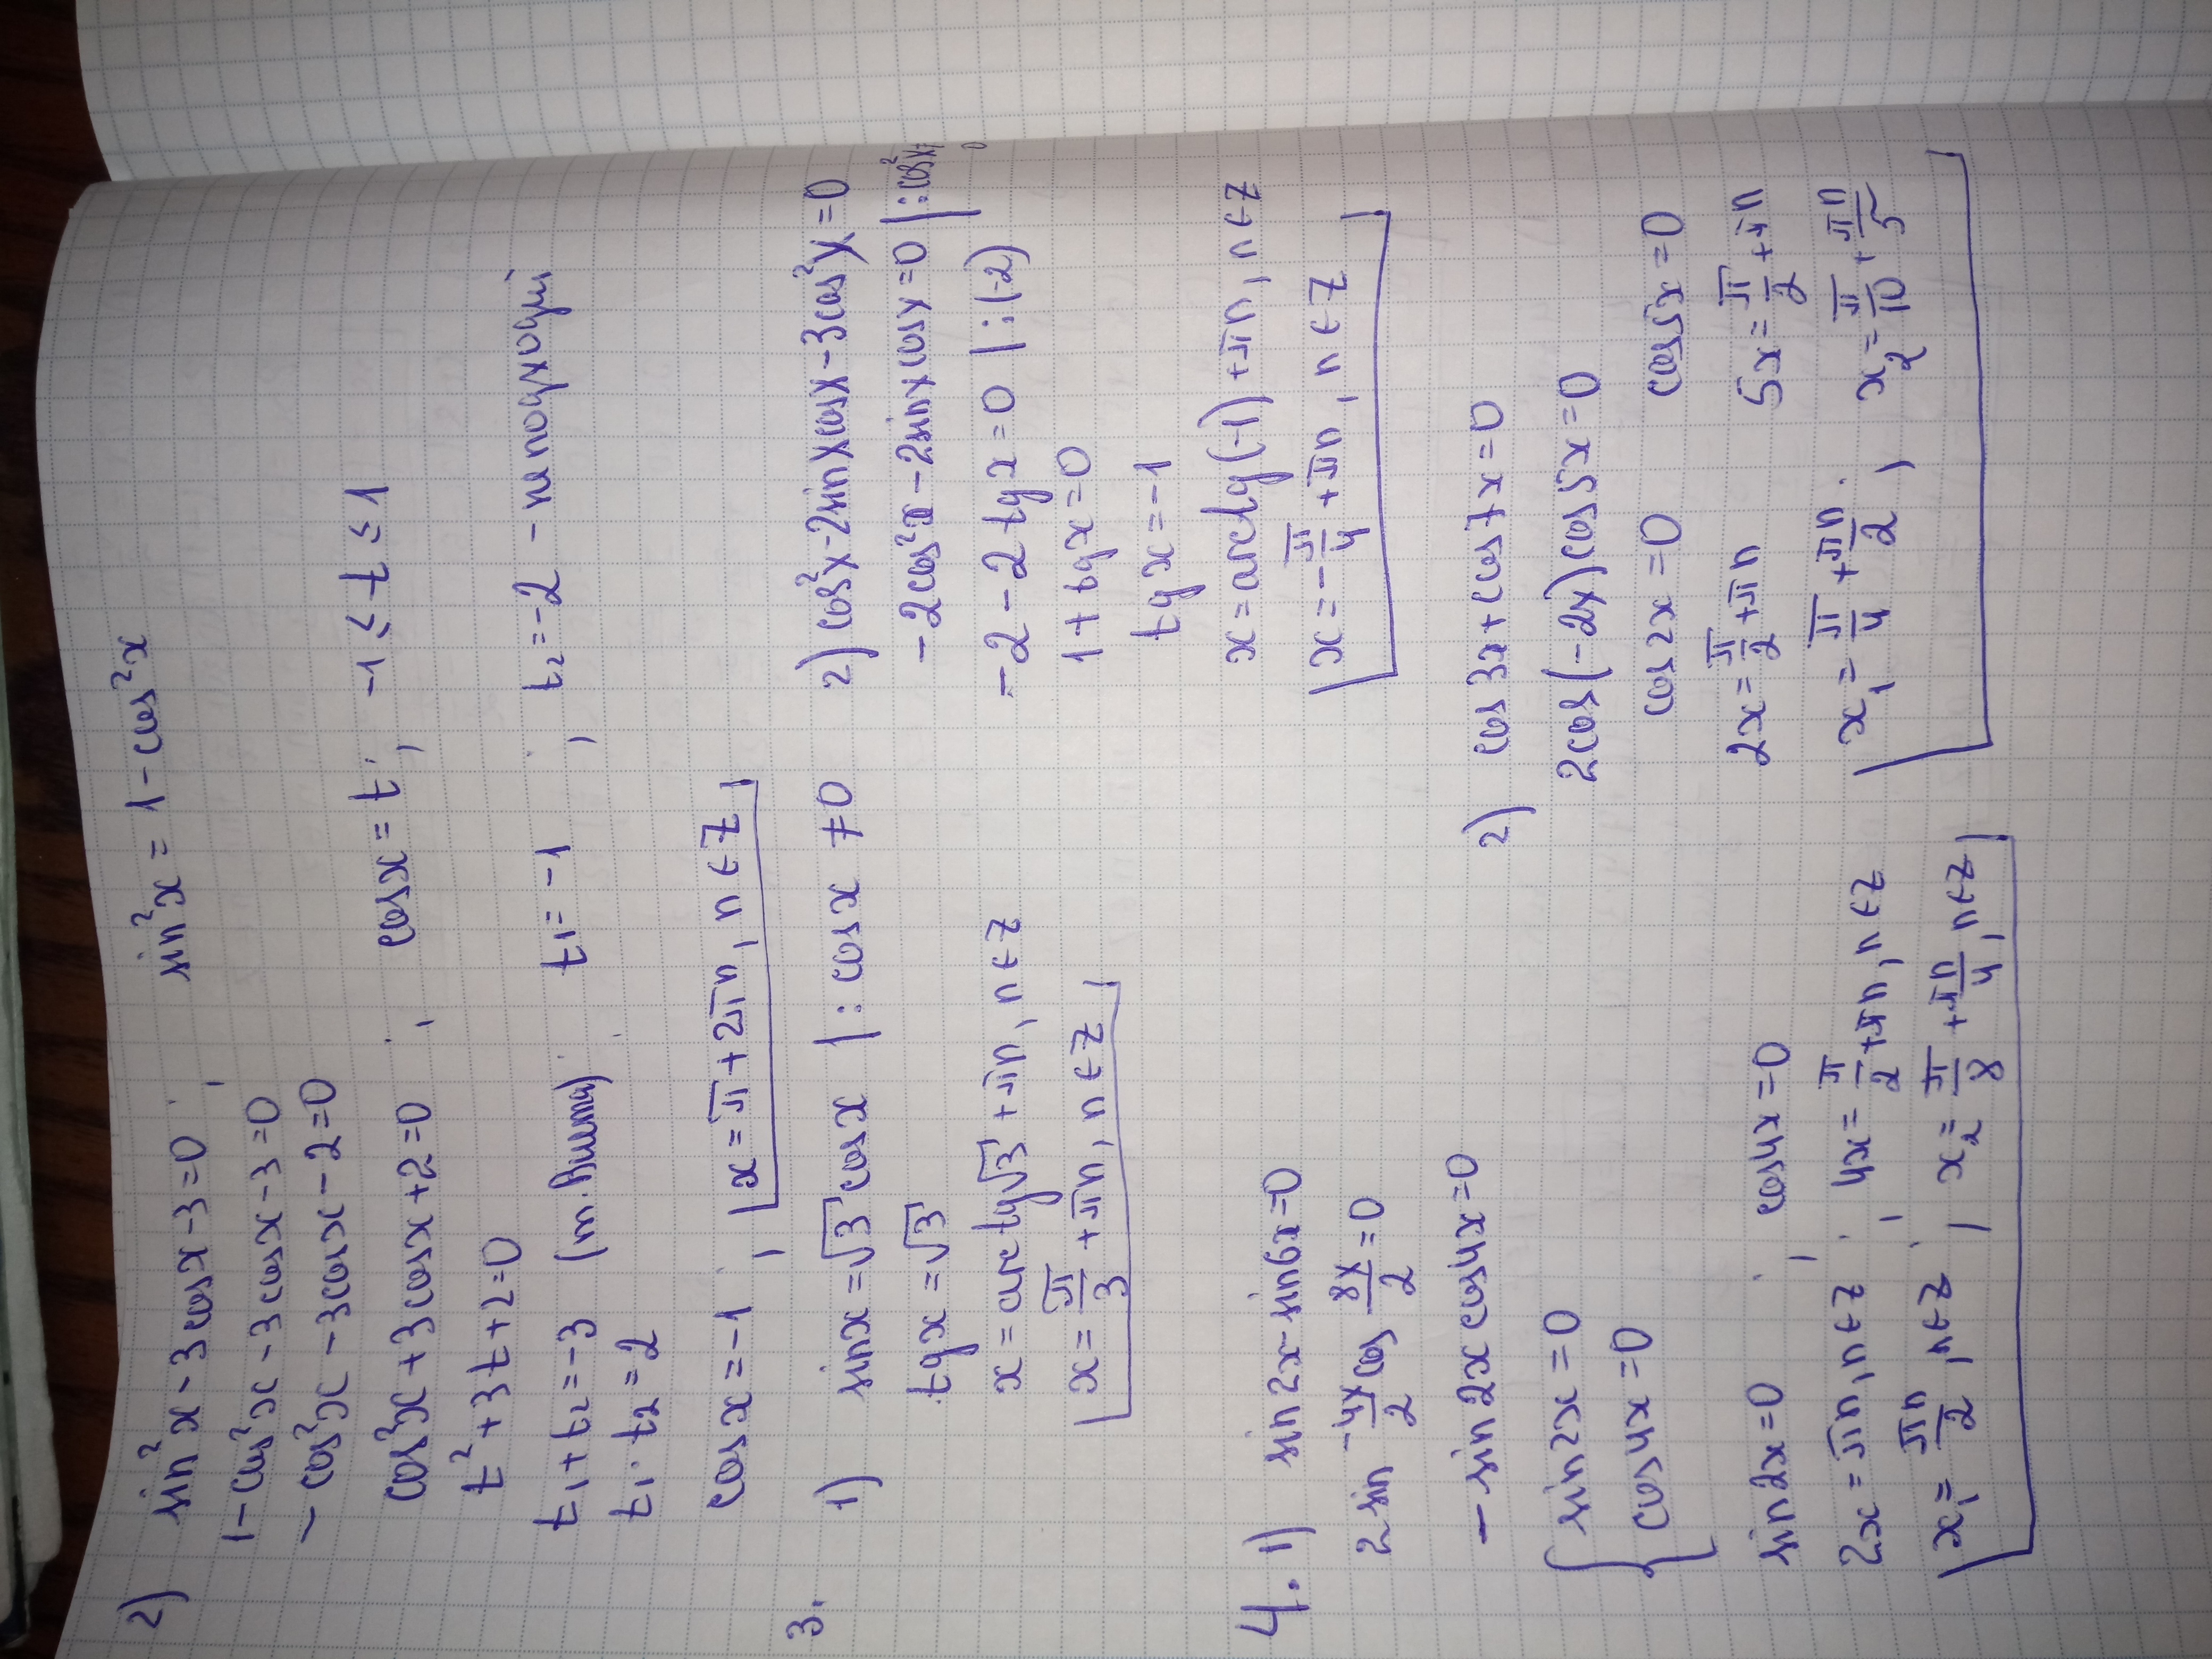 2) sin²x - 3cosx - 3 = 0 ; sin²x = 1 - cos²x
1 - cos²x - 3cosx - 3 = 0
- cos²x - 3cosx - 2 = 0
cos²x + 3cosx + 2 = 0 ; cosx = t ; -1 ≤ t ≤ 1
t² + 3t + 2 = 0
t₁ + t₂ = -3 (т. Вієта) ; t₁ = -1 ; t₂ = -2 - не подходит
t₁ · t₂ = 2
cosx = -1 ; x = π + 2πn, n ∈ Z
3. 1) sinx = √3 cosx | : cosx ≠ 0
tgx = √3
x = arctg√3 + πn, n ∈ Z
x = π/3 + πn, n ∈ Z
2) cos²x - 2sinxcosx - 3cos²x = 0
-2cos²x - 2sinxcosx = 0 | : cos²x ≠ 0
-2 - 2tgx = 0 | : (-2)
1 + tgx = 0
tgx = -1
x = arctg(-1) + πn, n ∈ Z
x = -π/4 + πn, n ∈ Z
4. 1) sin2x - sin6x = 0
2sin -4x/2 cos 8x/2 = 0
- sin2x cos4x = 0
{ sin2x = 0
cos4x = 0
sin2x = 0 ; cos4x = 0
2x = πn, n ∈ Z ; 4x = π/2 + πn, n ∈ Z
x₁ = πn/2, n ∈ Z ; x₂ = π/8 + πn/4, n ∈ Z
2) cos3x + cos7x = 0
2cos(-2x)cos5x = 0
cos2x = 0 cos5x = 0
2x = π/2 + πn 5x = π/2 + πn
x₁ = π/4 + πn/2 ; x₂ = π/10 + πn/5